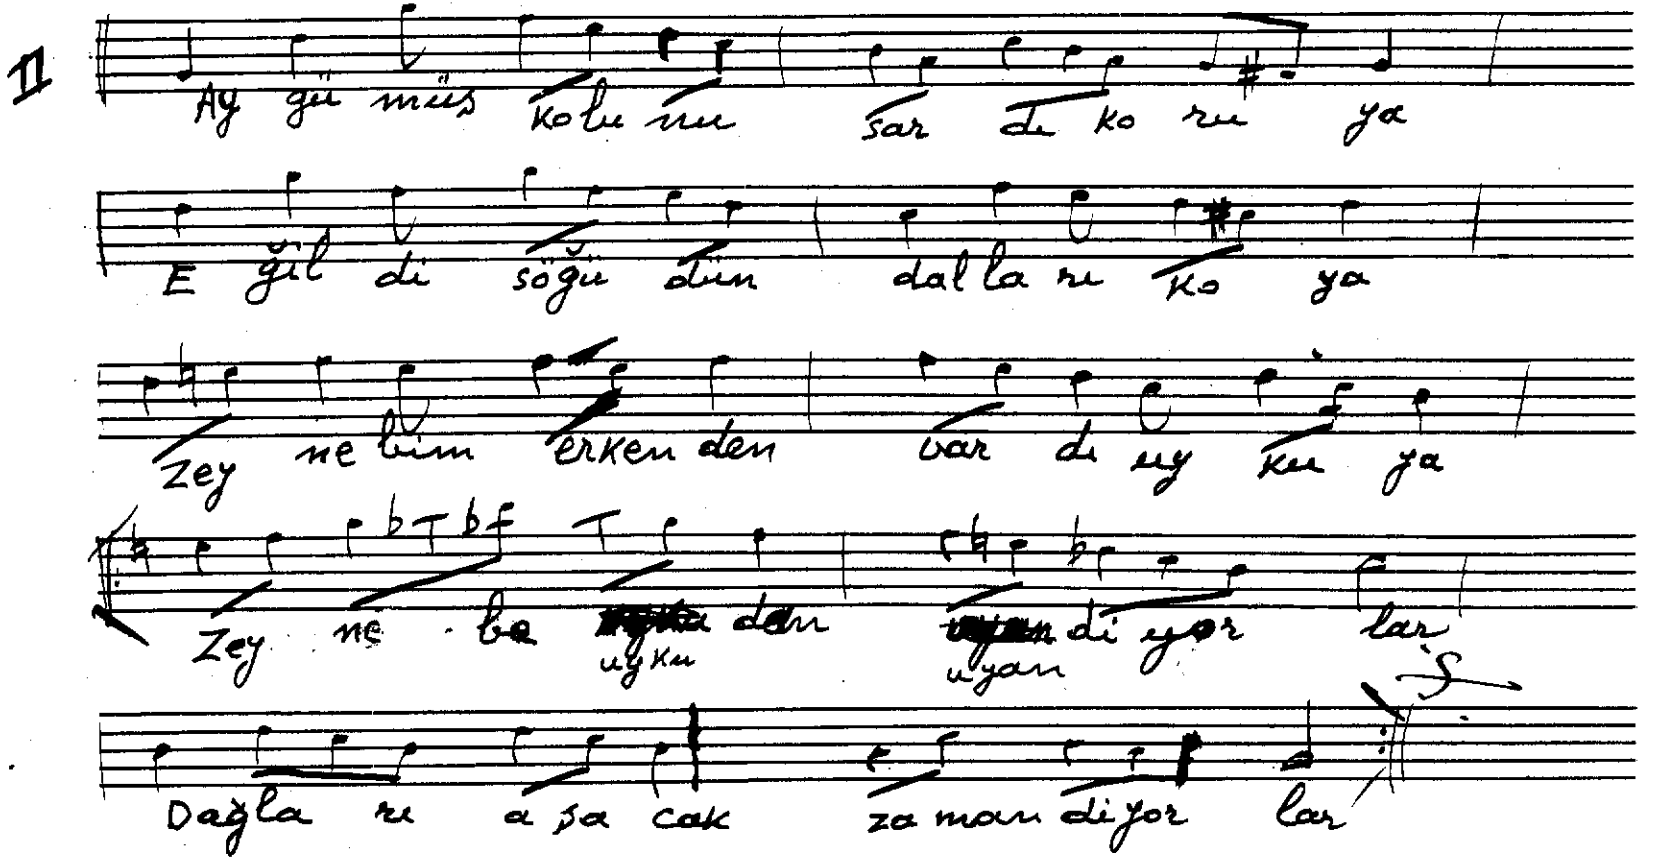 II
Ay gü müş kolu nu sar dı ko ru ya
E ğil di söğü dün dal la rı ko ya
Zey ne bim erken den var dı uy ku ya
Zey ne be den di yor lar
uyku uyan
Dağla rı a şa cak za man diyor lar